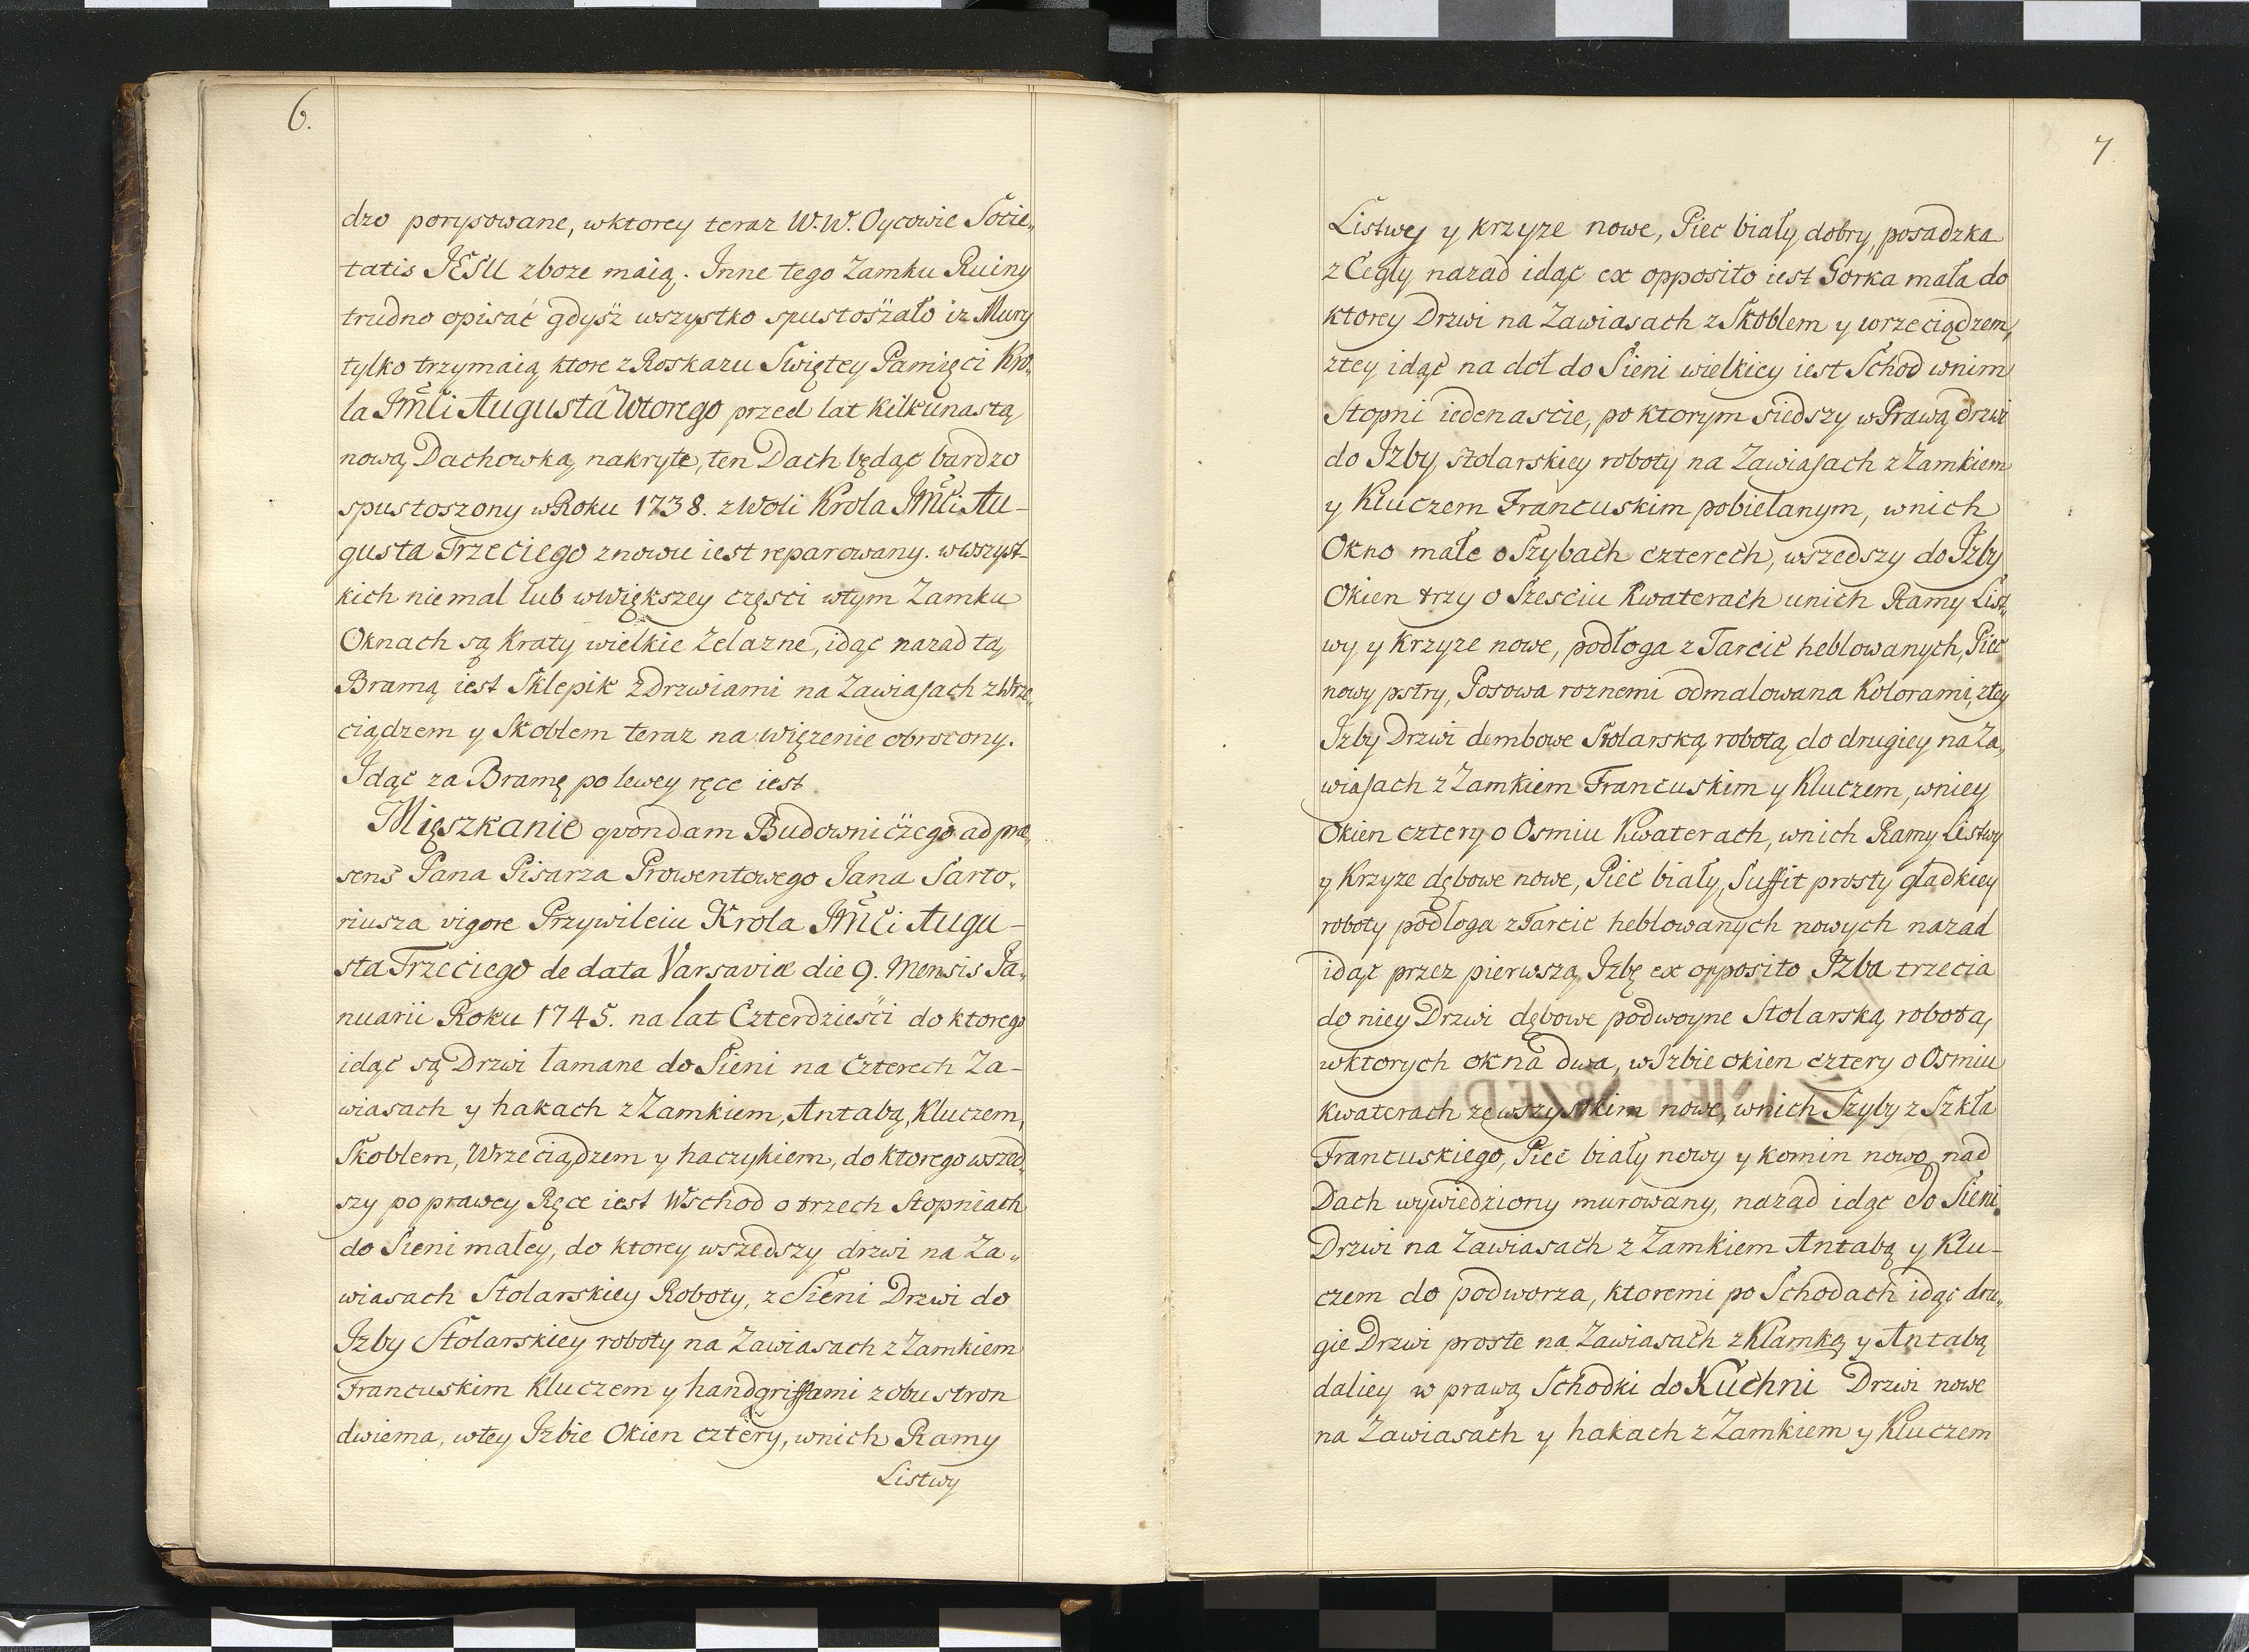 6.
dzo porysowane, wktorey teraz W.W. Oycowie Socie„
tatis JESU zboze maią. Inne tego Zamku Ruiny
trudno opisać gdysz wszystko spustoszało iz Mury
tylko trzymaią ktore z Roskazu Swiętey Pamięci Kro„
la JMći Augusta Wtorego przed lat kilkunastą
nową Dachowką nakryte, ten Dach będąc bardzo
spustoszony w Roku 1738. z Woli Krola JMći Au-
gusta Trzeciego znowu iest reparowany. wwszyst-
kich niemal lub wwiększey częsci wtym Zamku
Oknach są Kraty wielkie Zelazne, idąc nazad tą
Bramą iest Sklepik z Drzwiami na Zawiasach z Wrze„
ciądzem y Skoblem teraz na więzenie obrocony.
Idąc za Bramę po lewey ręce iest
Mięszkanie qvondam Budowniczego ad præ„
sens Pana Pisarza Prowentowego Jana Sarto„
riusza vigore Przywileiu Krola JMći Augu-
sta Trzeciego de data Varsaviæ die 9. Mensis Ja„
nuarii Roku 1745. na lat Czterdziesci do ktorego
idąc są Drzwi łamane do Sieni na Czterech Za-
wiasach y hakach z Zamkiem, Antabą, Kluczem,
Skoblem, Wrzeciądzem y haczykiem, do ktorego wszed„
szy po prawey Ręce iest Wschod o trzech Stopniach
do Sieni małey, do ktorey wszedszy drzwi na Za„
wiasach Stolarskiey Roboty, z Sieni Drzwi do
Izby Stolarskiey roboty na Zawiasach z Zamkiem
Francuskim Kluczem y handgriffami z obu stron
dwiema, wtey Izbie Okien cztery, wnich Ramy
Listwy
7
Listwy y krzyze nowe, Piec biały dobry, posadzka
z Cegły nazad idąc ex opposito iest Gorka mała do
ktorey Drzwi na Zawiasach z Skoblem y wrzeciądzem,
ztey idąc na doł do Sieni wielkiey iest Schod wnim
Stopni iedenascie, po ktorym siedszy w Prawą drzwi
do Izby stolarskiey roboty na Zawiasach z Zamkiem
y Kluczem Francuskim pobielanym, wnich
Okno małe o Szybach czterech, wszedszy do Izby
Okien trzy o Szesciu Kwaterach unich Ramy List„
wy y Krzyze nowe, podłoga z Tarcic heblowanych, Piec
nowy pstry, Posowa roznemi odmalowana Kolorami, ztey
Izby Drzwi dembowe Stolarską robotą do drugiey na Za„
wiasach z Zamkiem Francuskim y Kluczem, wniey
Okien cztery o Osmiu Kwaterach, wnich Ramy Listwy
y Krzyze dębowe nowe, Piec biały, Suffit prosty gładkiey
roboty podłoga z Tarcic heblowanych nowych nazad
idąc przez pierwszą Izbę ex opposito Izba trzecia
do niey Drzwi dębowe podwoyne Stolarską robotą,
wktorych okna dwa, w Izbie okien cztery o Osmiu
kwaterach zewszystkim nowe, wnich Szyby z Szkła
Francuskiego, Piec biały nowy y komin nowo nad
Dach wywiedziony murowany, nazad idąc do Sieni
Drzwi na Zawiasach z Zamkiem Antabą y Klu-
czem do podworza, ktoremi po Schodach idąc dru„
gie Drzwi proste na Zawiasach z Klamką y Antabą
daliey w prawą Schodki do Kuchni Drzwi nowe
na Zawiasach y hakach z Zamkiem y Kluczem